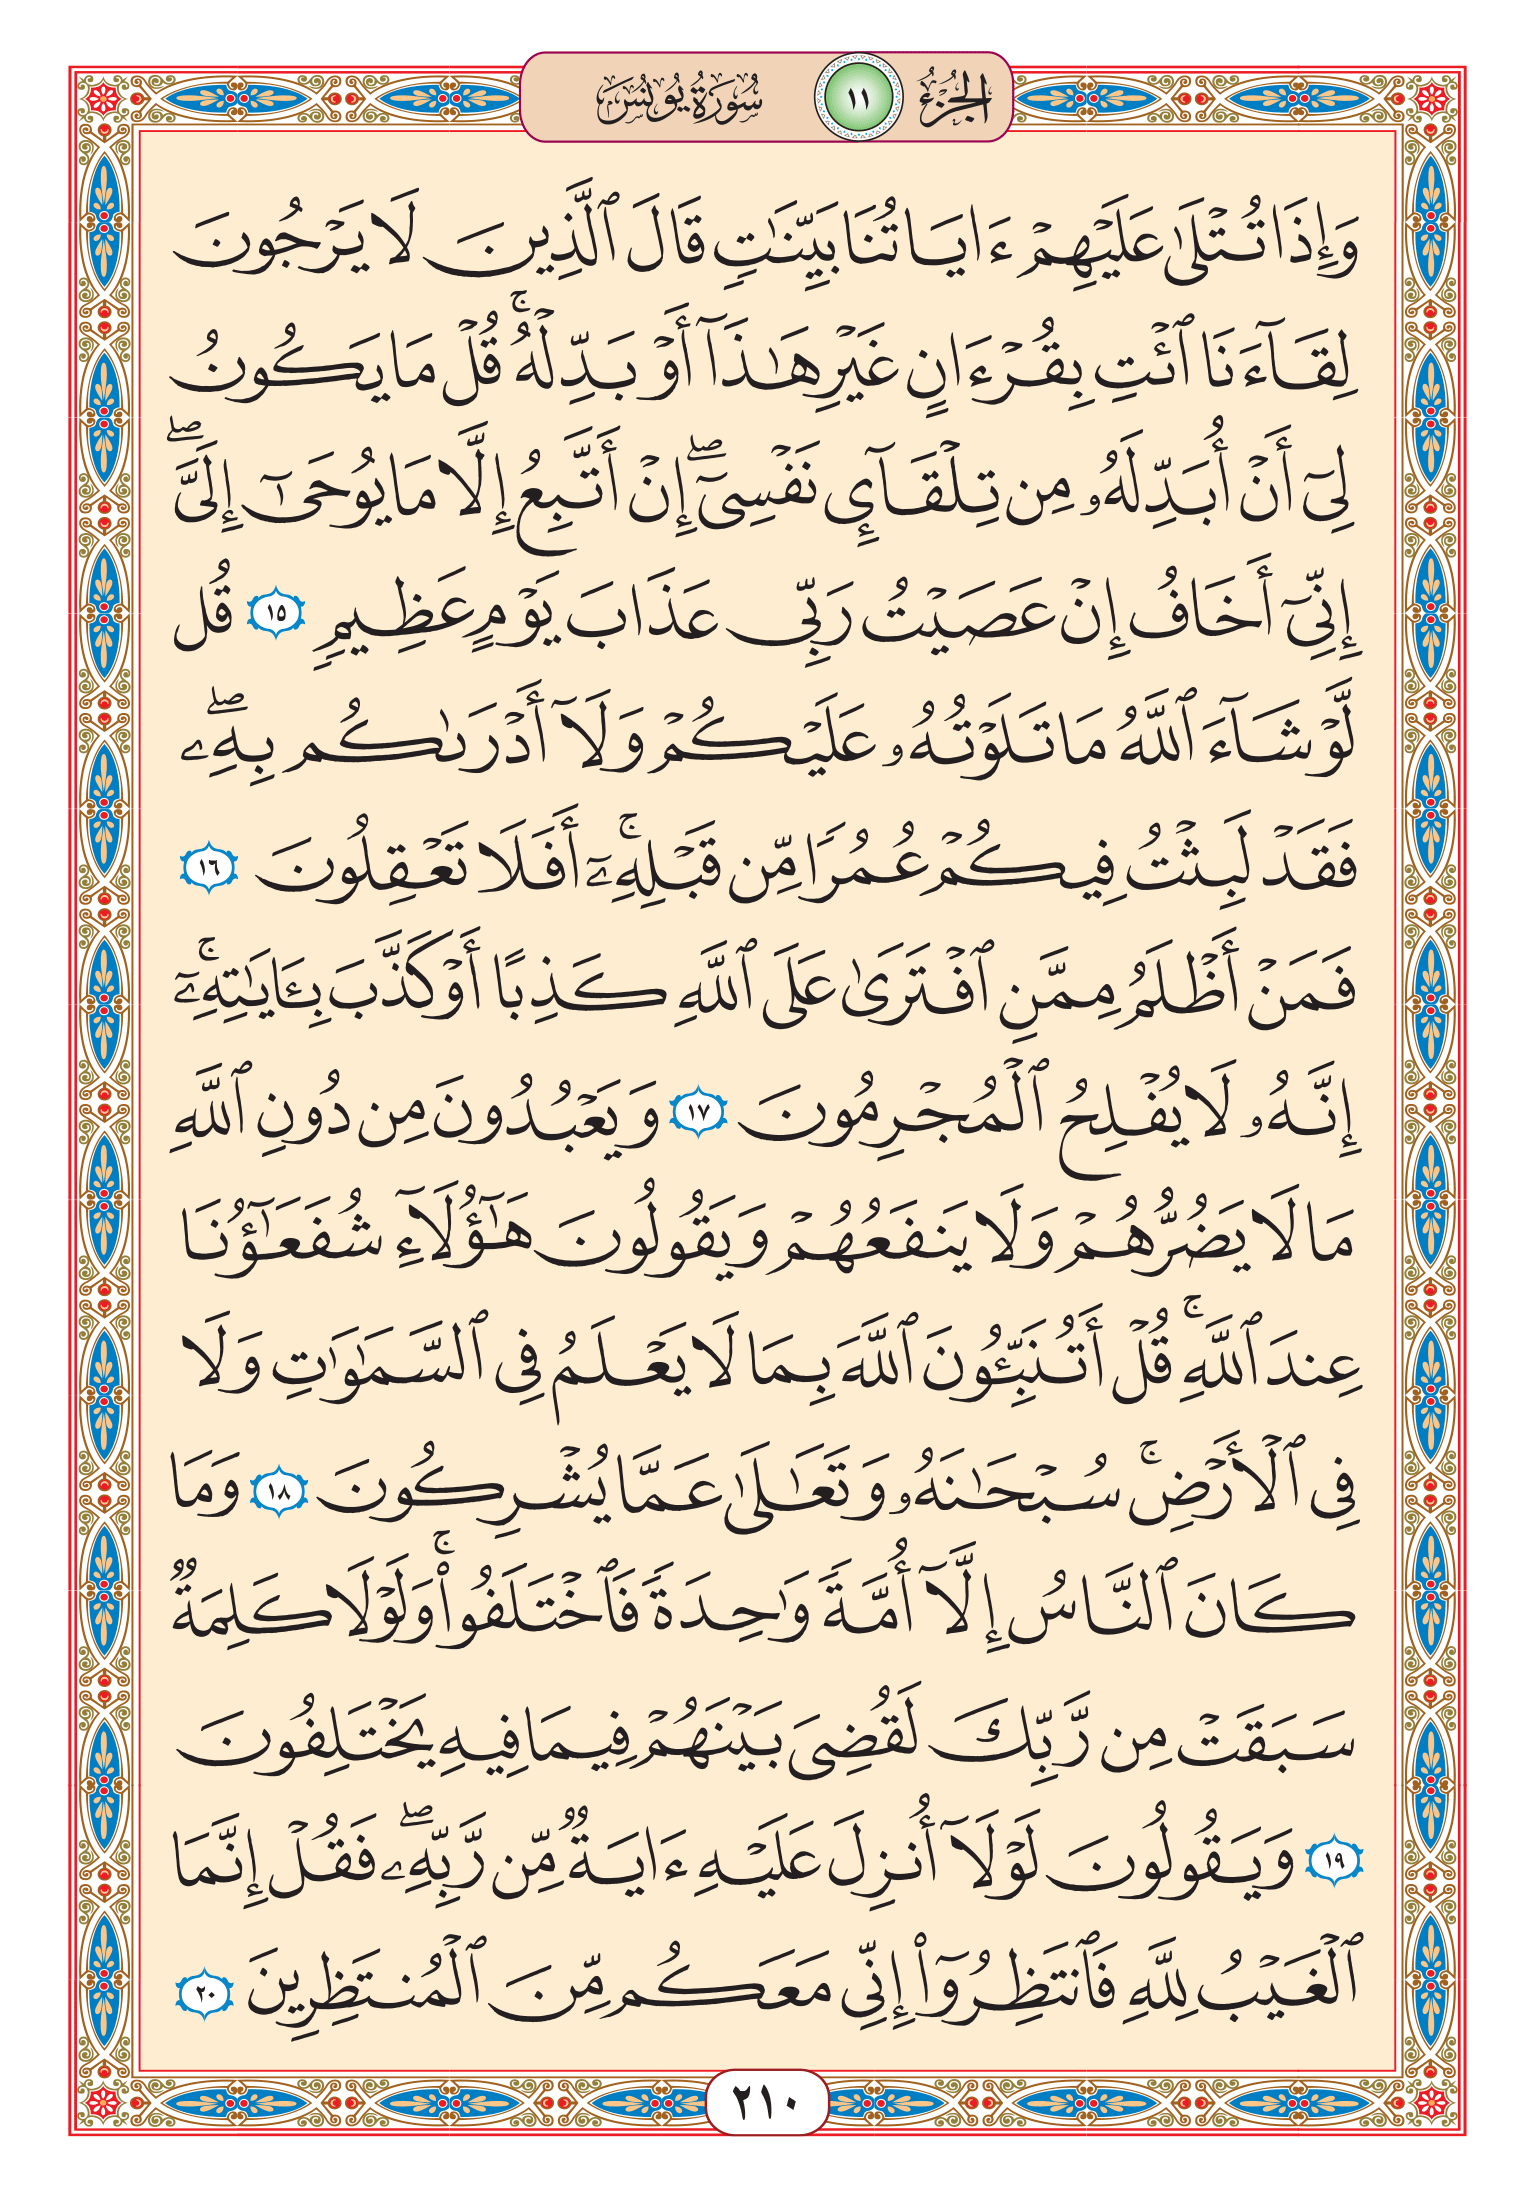 الجزء ١١ سورة يونس
وَإِذَا تُتْلَىٰ عَلَيْهِمْ ءَايَاتُنَا بَيِّنَٰتٍ قَالَ ٱلَّذِينَ لَا يَرْجُونَ
لِقَآءَنَا ٱئْتِ بِقُرْءَانٍ غَيْرِ هَٰذَآ أَوْ بَدِّلْهُ ۚ قُلْ مَا يَكُونُ
لِىٓ أَنْ أُبَدِّلَهُۥ مِن تِلْقَآئِ نَفْسِىٓ ۖ إِنْ أَتَّبِعُ إِلَّا مَا يُوحَىٰٓ إِلَىَّ ۖ
إِنِّىٓ أَخَافُ إِنْ عَصَيْتُ رَبِّى عَذَابَ يَوْمٍ عَظِيمٍ ١٥ قُل
لَّوْ شَآءَ ٱللَّهُ مَا تَلَوْتُهُۥ عَلَيْكُمْ وَلَآ أَدْرَىٰكُم بِهِۦ ۖ
فَقَدْ لَبِثْتُ فِيكُمْ عُمُرًا مِّن قَبْلِهِۦٓ ۚ أَفَلَا تَعْقِلُونَ ١٦
فَمَنْ أَظْلَمُ مِمَّنِ ٱفْتَرَىٰ عَلَى ٱللَّهِ كَذِبًا أَوْ كَذَّبَ بِـَٔايَٰتِهِۦٓ ۚ
إِنَّهُۥ لَا يُفْلِحُ ٱلْمُجْرِمُونَ ١٧ وَيَعْبُدُونَ مِن دُونِ ٱللَّهِ
مَا لَا يَضُرُّهُمْ وَلَا يَنفَعُهُمْ وَيَقُولُونَ هَٰٓؤُلَآءِ شُفَعَٰٓؤُنَا
عِندَ ٱللَّهِ ۚ قُلْ أَتُنَبِّـُٔونَ ٱللَّهَ بِمَا لَا يَعْلَمُ فِى ٱلسَّمَٰوَٰتِ وَلَا
فِى ٱلْأَرْضِ ۚ سُبْحَٰنَهُۥ وَتَعَٰلَىٰ عَمَّا يُشْرِكُونَ ١٨ وَمَا
كَانَ ٱلنَّاسُ إِلَّآ أُمَّةً وَٰحِدَةً فَٱخْتَلَفُوا۟ ۚ وَلَوْلَا كَلِمَةٌ
سَبَقَتْ مِن رَّبِّكَ لَقُضِىَ بَيْنَهُمْ فِيمَا فِيهِ يَخْتَلِفُونَ
١٩ وَيَقُولُونَ لَوْلَآ أُنزِلَ عَلَيْهِ ءَايَةٌ مِّن رَّبِّهِۦ ۖ فَقُلْ إِنَّمَا
ٱلْغَيْبُ لِلَّهِ فَٱنتَظِرُوٓا۟ إِنِّى مَعَكُم مِّنَ ٱلْمُنتَظِرِينَ ٢٠
٢١٠